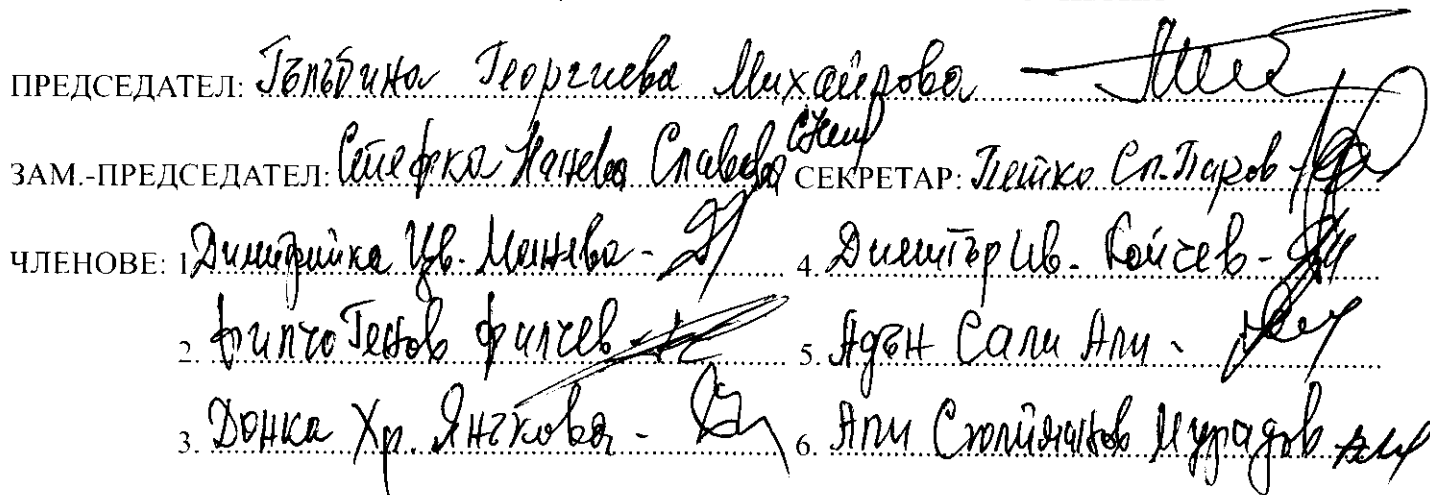 ПРЕДСЕДАТЕЛ: Гълъбина Георгиева Михайлова
ЗАМ.-ПРЕДСЕДАТЕЛ: Стефка Нанева Славова СЕКРЕТАР: Петко Сп. Паров -
ЧЛЕНОВЕ: 1. Димитрийка Цв. Манева - 4. Димитър Ив. Койчев -
2. Филчо Генов Филчев - 5. Адън Сали Али -
3. Донка Хр. Янчкова - 6. Али Мурадов